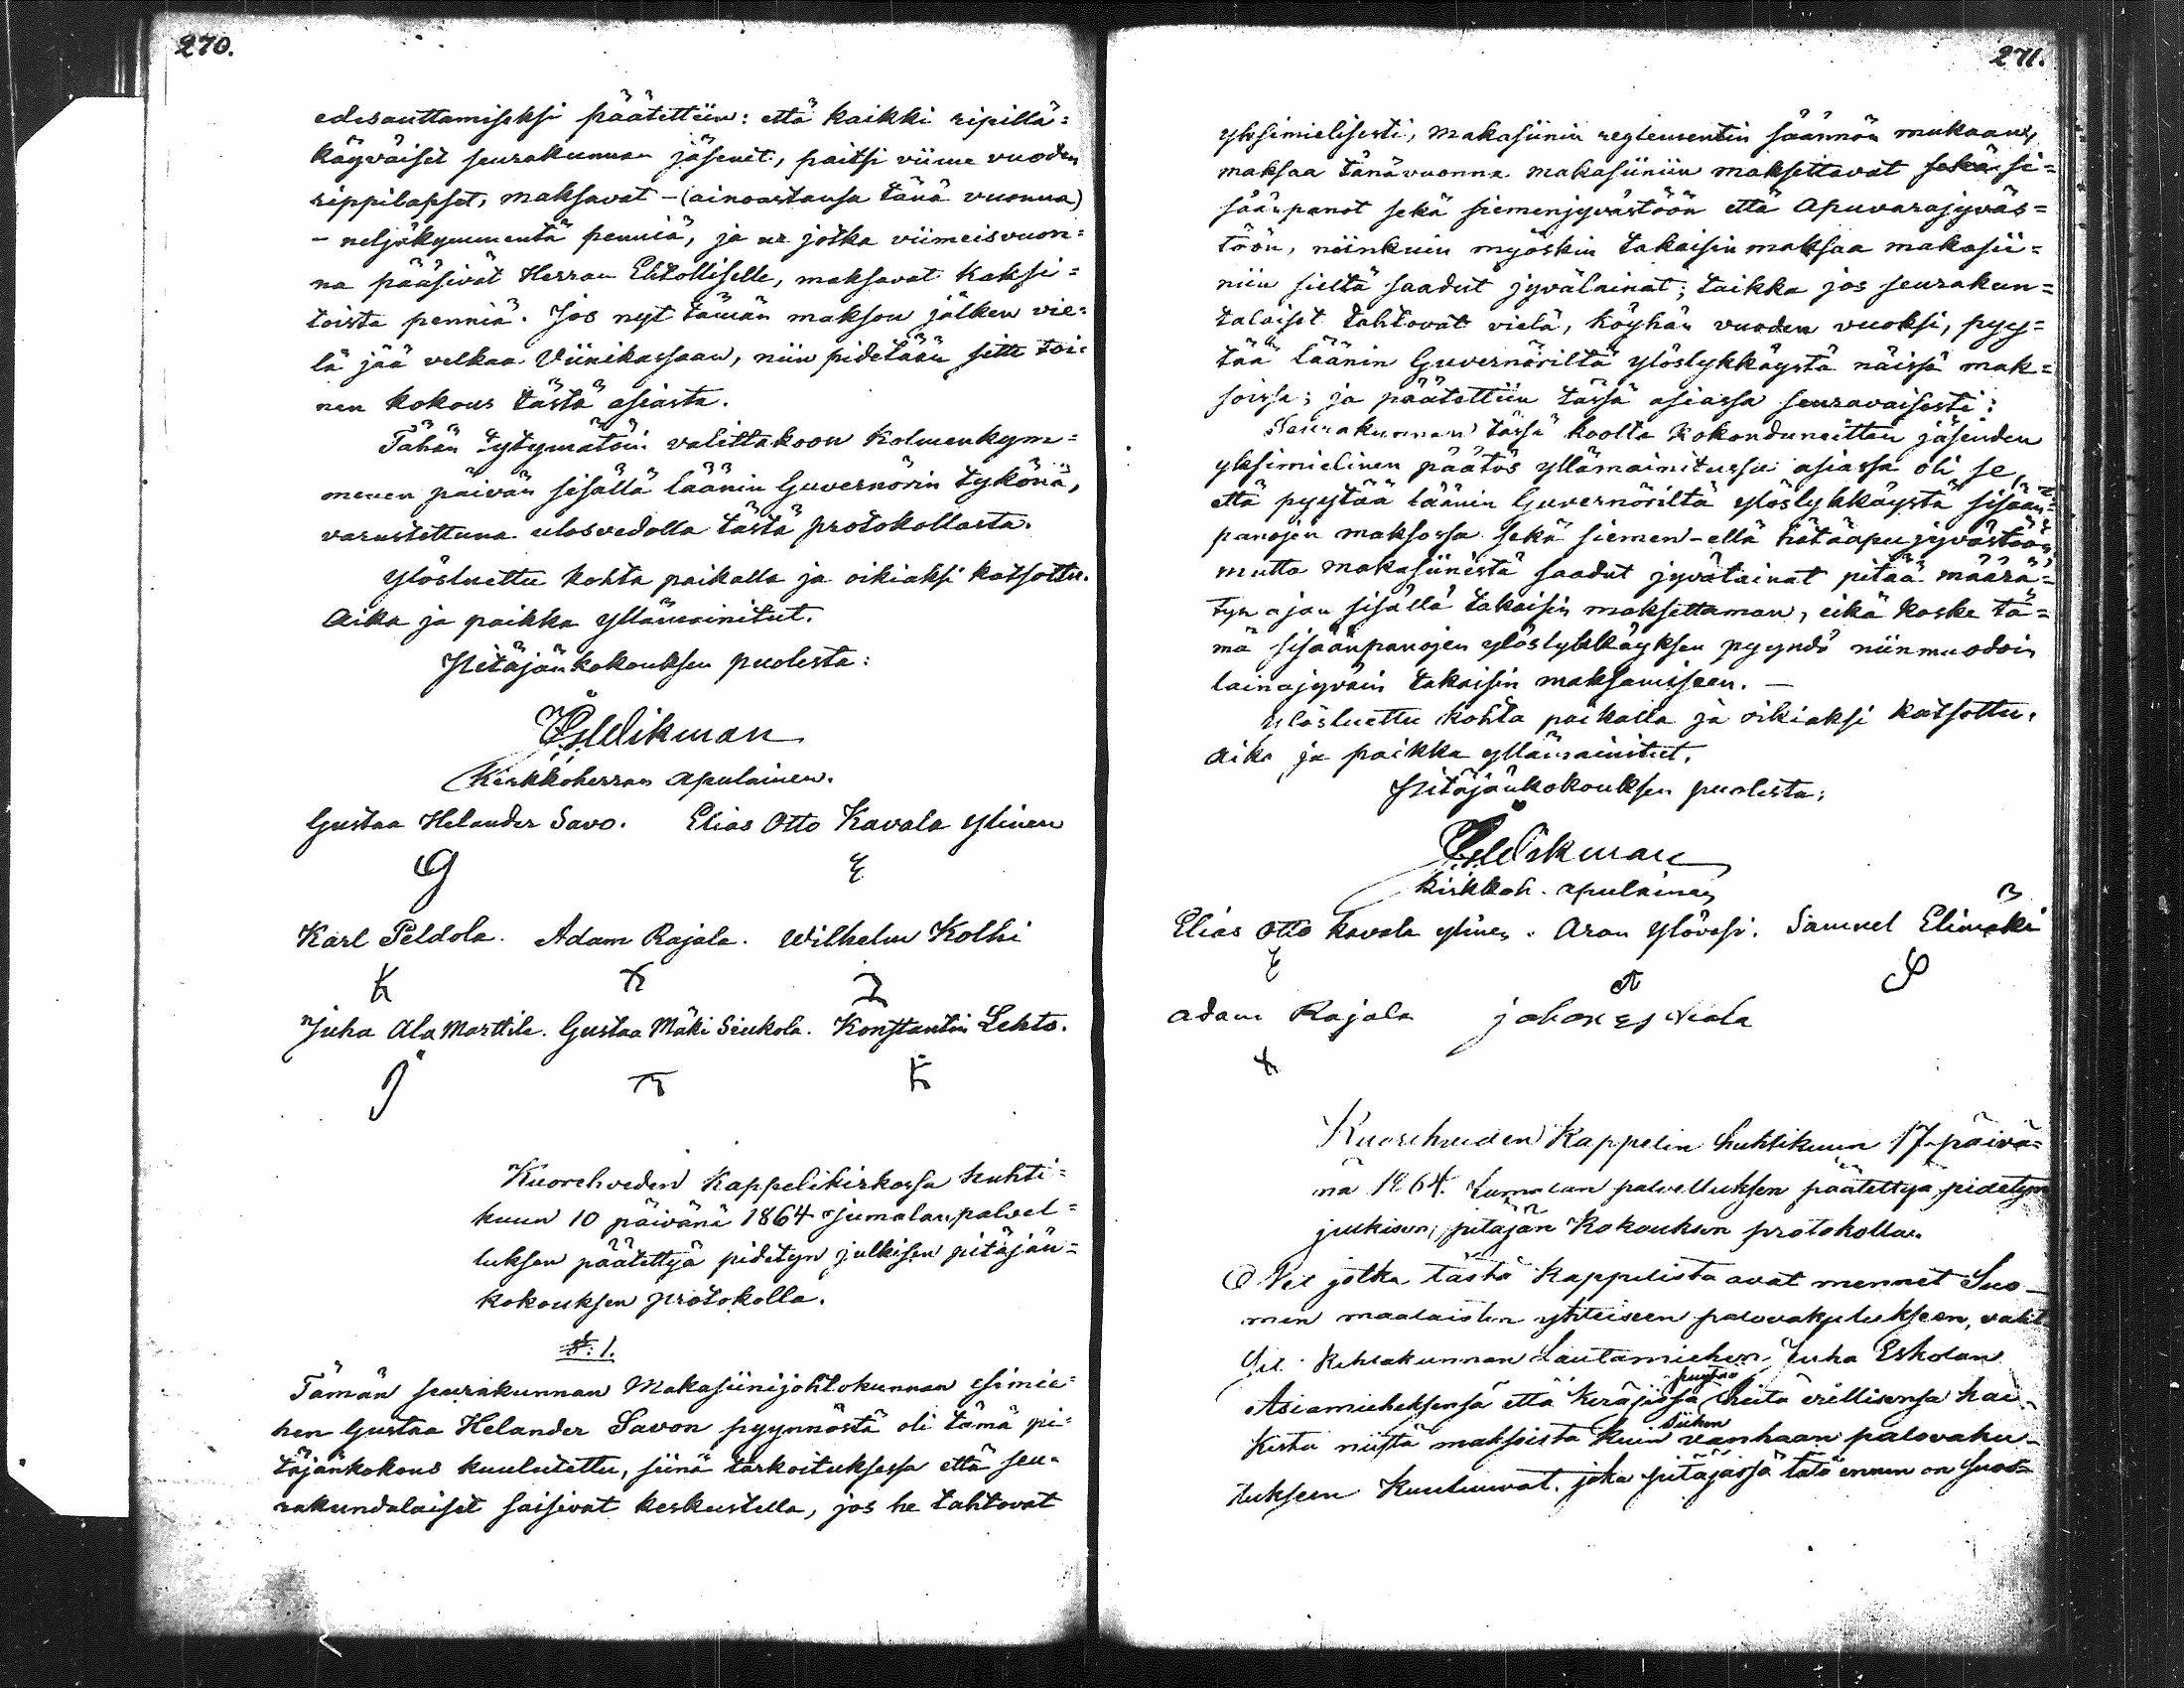 270.
edesauttamiseksi päätettiin: että kaikki ripillä=
käyväiset seurakunnan jäsenet, paitsi viime vuoden
rippilapset, maksavat – (ainoastansa tänä vuonna)
– neljäkymmentä penniä, ja ne jotka viimeisvuon=
na pääsivät Herran Ehtolliselle, maksavat kaksi=
toista penniä. Jos nyt tämän makson jälken vie=
lä jää velkaa Viinikassaan, niin pidetään sitte toi=
nen kokous tästä asiasta.
Tähän tytymätöin valittakoon kolmenkym=
menen päivän sisällä läänin Guvernörin tykönä,
varustettuna ulosvedolla tästä protokollasta.
Ylösluettu kohta paikalla ja oikiaksi katsottu.
Aika ja paikka yllämainitut.
Pitäjänkokouksen puolesta:
Wikman
Kirkkoherran apulainen.
Gustaa Helander Savo. Elias Otto Kavala Ylinen
G E
Karl Peldola. Adam Rajala. Wilhelm Kolhi
K
Juha Ala Marttila. Gustaa Mäki Seukola. Konstantin Lehto.
J K
Kuorehveden Kappelikirkossa huhti=
kuun 10 päivänä 1864 Jumalan palvel=
luksen päätettyä pidetyn julkisen pitäjän=
kokouksen protokolla.
§: 1.
Tämän seurakunnan Makasiinijohtokunnan esimie=
hen Gustaa Helander Savon pyynnöstä oli tämä pi=
täjänkokous kuulutettu, siinä tarkoituksessa että seu=
rakundalaiset saisivat keskustella, jos he tahtovat
271.
yksimielisesti, makasiinin reglementin säännön mukaan,
maksaa tänävuonna makasiiniin maksettavat sekä si=
säänpanot sekä siemenjyvästöön että apuvarajyväs=
töön, niinkuin myöskin takaisin maksaa makasii=
niin sieltä saadut jyvälainat; taikka jos seurakun=
talaiset tahtovat vielä, köyhän vuoden vuoksi, pyy=
tää läänin Guvernöriltä ylöslykkäystä näissä mak=
soissa; ja päätettiin tässä asiassa seuravaisesti:
Seurakunnan tässä koolla kokonduneitten jäsenden
yksimielinen päätös yllämainitussa asiassa oli se,
että pyytää läänin Guvernöriltä ylöslykkäystä sisään=
panojen maksossa sekä siemen- että hätäapujyvästöön,
mutta makasiinista saadut jyvälainat pitää määrä=
tyn ajan sisällä takaisin maksettaman, eikä koske tä=
mä sisäänpanojen ylöslykkäyksen pyyndö niinmuodoin
lainajyväin takaisin maksamiseen. –
Ylösluettu kohta paikalla ja oikiaksi katsottu,
Aika ja paikka yllämainitut.
Pitäjänkokouksen puolesta:
Wikman
Kirkkoh. apulainen
Elias Otto Kavala ylinen. Aron Ylövesi. Samuel Elimäki
E A S
Adam Rajala
Kuorehveden Kappelin huhtikuun 17 päivä=
nä 1864. Jumalan palvelluksen päätettyä pidetyn
julkisen, pitäjän kokouksen protokolla.
Net jotka tästä Kappelista ovat mennet Suo-
men maalaisten yhteiseen palovakutukseen, valit
sit kihlakunnan Lautamiehen Juha Eskolan
Asiamieheksensä että keräjissä heitä erillisensä kai-
kista niistä maksoista kuin siihen vanhaan palovaku-
tukseen kuuluuvat, joka pitäjässä tätä ennen on